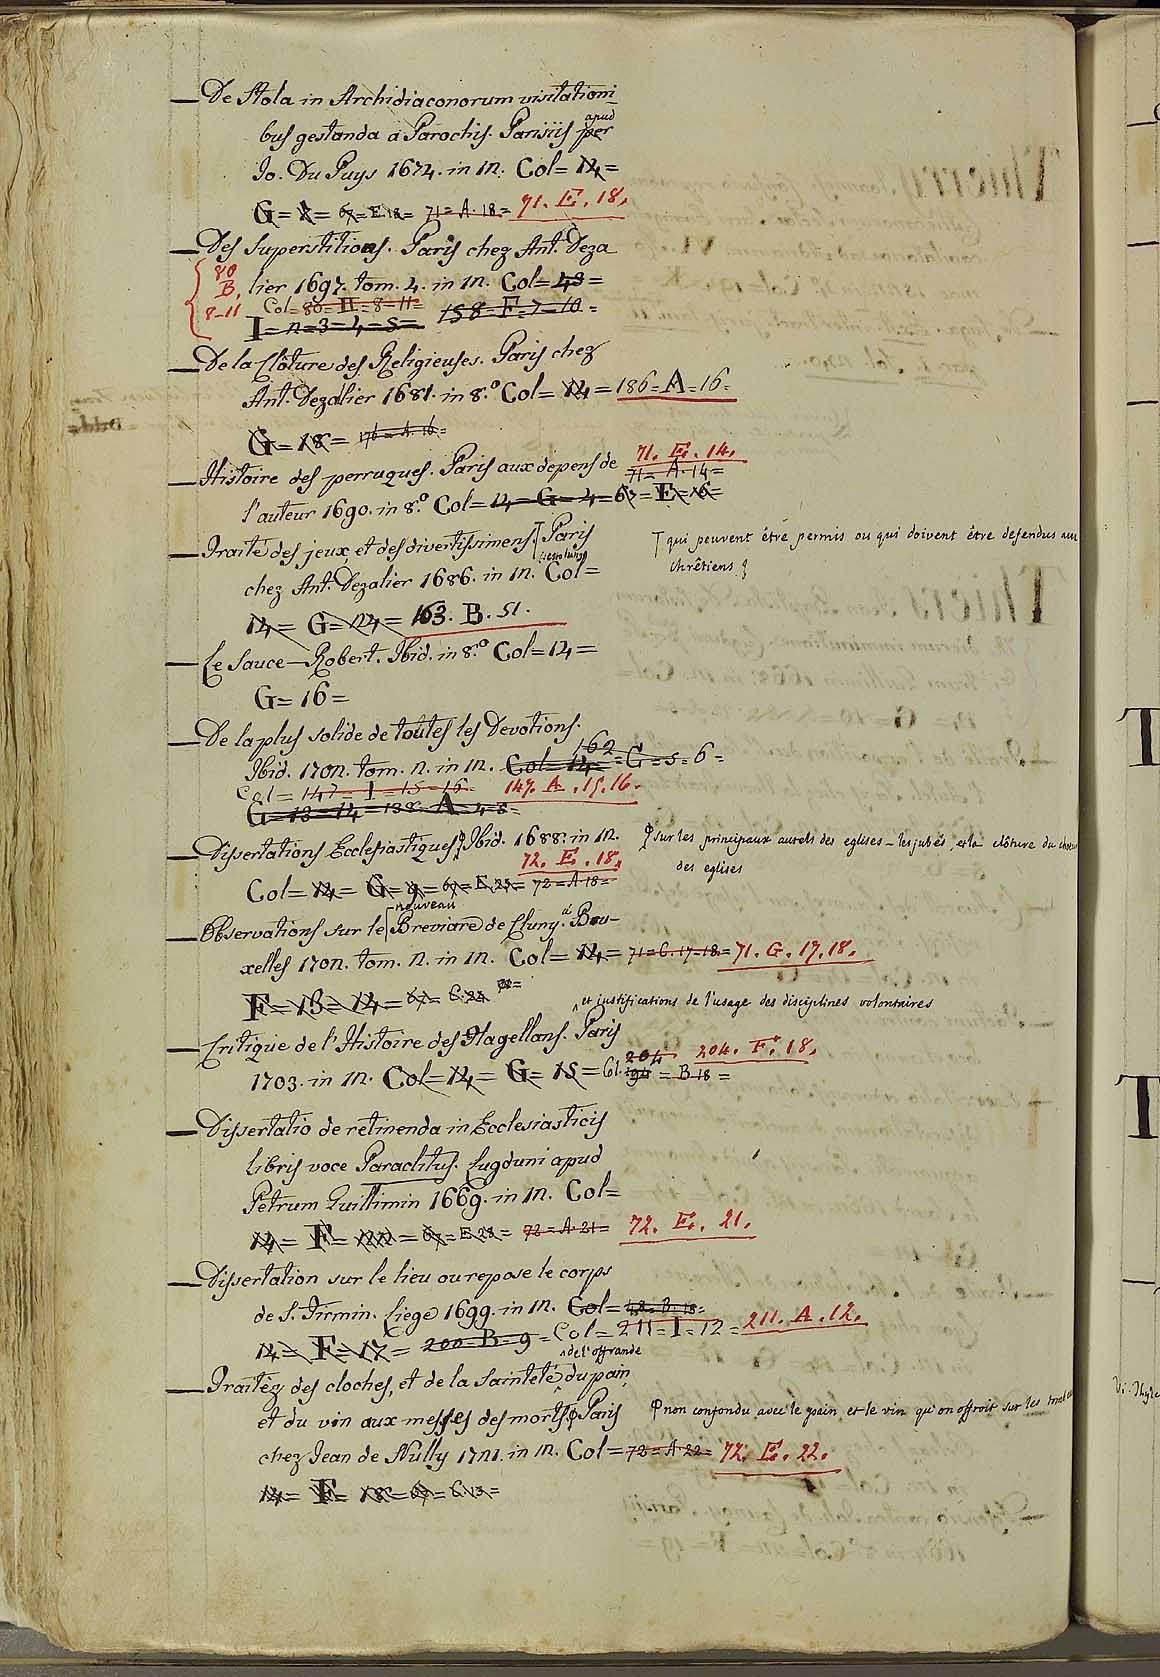 — De Stola in Archidiaconorum visitationi-
bus gestanda a Parochis. Parisiis per apud
Jo. Du Puys 1674. in 12. Col= 14=
G= 8= 67= E. 18= 71= A. 18= 71. E. 18.
— Des Superstitions. Paris chez Ant. Deza
80 B. 8-11
lier 1697. tom. 4. in 12. Col= 48=
Col= 80= H= 8-11=
I= 2=3=4=5= 158= F= 7=10=
— De la Clôture des Religieuses. Paris chez
Ant. Dezallier 1681. in 8.º Col= 14= 186= A= 16=
G= 18= 176= A. 16=
— Histoire des perruques. Paris aux depens de 71. E. 14.
71= A. 14=
l'auteur 1690. in 8.º Col= 14= G= 4= 67= E= 16=
— Traité des jeux et des divertissimens. Paris
qui peuvent étre permis ou qui doivent être defendus aux
chrêtiens
chez Ant. Dezalier 1686. in 12. Col=
14= G= 124= 163. B. 51.
— Le Sauce-Robert. Ibid. in 8.º Col= 14=
G= 16=
— De la plus solide de toutes les Devotions.
Ibid. 1702. tom. 2. in 12. Col= 14= 162= G= 5= 6=
Col= 147= I= 15=16= 147. A. 15. 16.
G= 13=14= 138= A= 4=5=
— Dissertations Ecclesiastiques Ibid. 1688. in 12.
sur les principaux autels des eglises – les jubés et la clôture du chœur
des eglises
72. E. 18.
Col= 14= G= 9= 67= E. 25= 72= A. 18=
— Observations sur le nouveau Breviaire de Cluny. à Bru-
xelles 1702. tom. 2. in 12. Col= 14= 71= C. 17=18= 71. G. 17. 18.
F= 13= 14= 67= C. 24
et justifications de l'usage des disciplines volontaires
— Critique de l'Histoire des Flagellans. Paris
1703. in 12. Col= 14= G= 15= Col. 194 204 = B. 18= 204. F. 18.
— Dissertatio de retinenda in Ecclesiasticis
libris voce Paraclitus. Lugduni apud
Petrum Guillimin 1669. in 12. Col=
14= F= 67= E. 23= 72= A. 21= 72. E. 21.
— Dissertation sur le lieu ou repose le corps
de S. Firmin. Liege 1699. in 12. Col= 42= B. 18=
14= F= 17= 200= B= 9= Col= 211= I= 12= 211. A. 12.
de l'offrande
— Traitéz des cloches, et de la Sainteté du pain
et du vin aux messes des morts Paris
non confondu avec le pain et le vin qu'on offroit sur les
chez Jean de Nully 1721. in 12. Col= 72= A. 22= 72. E. 22.
14= F= 18= 67= C. 13=